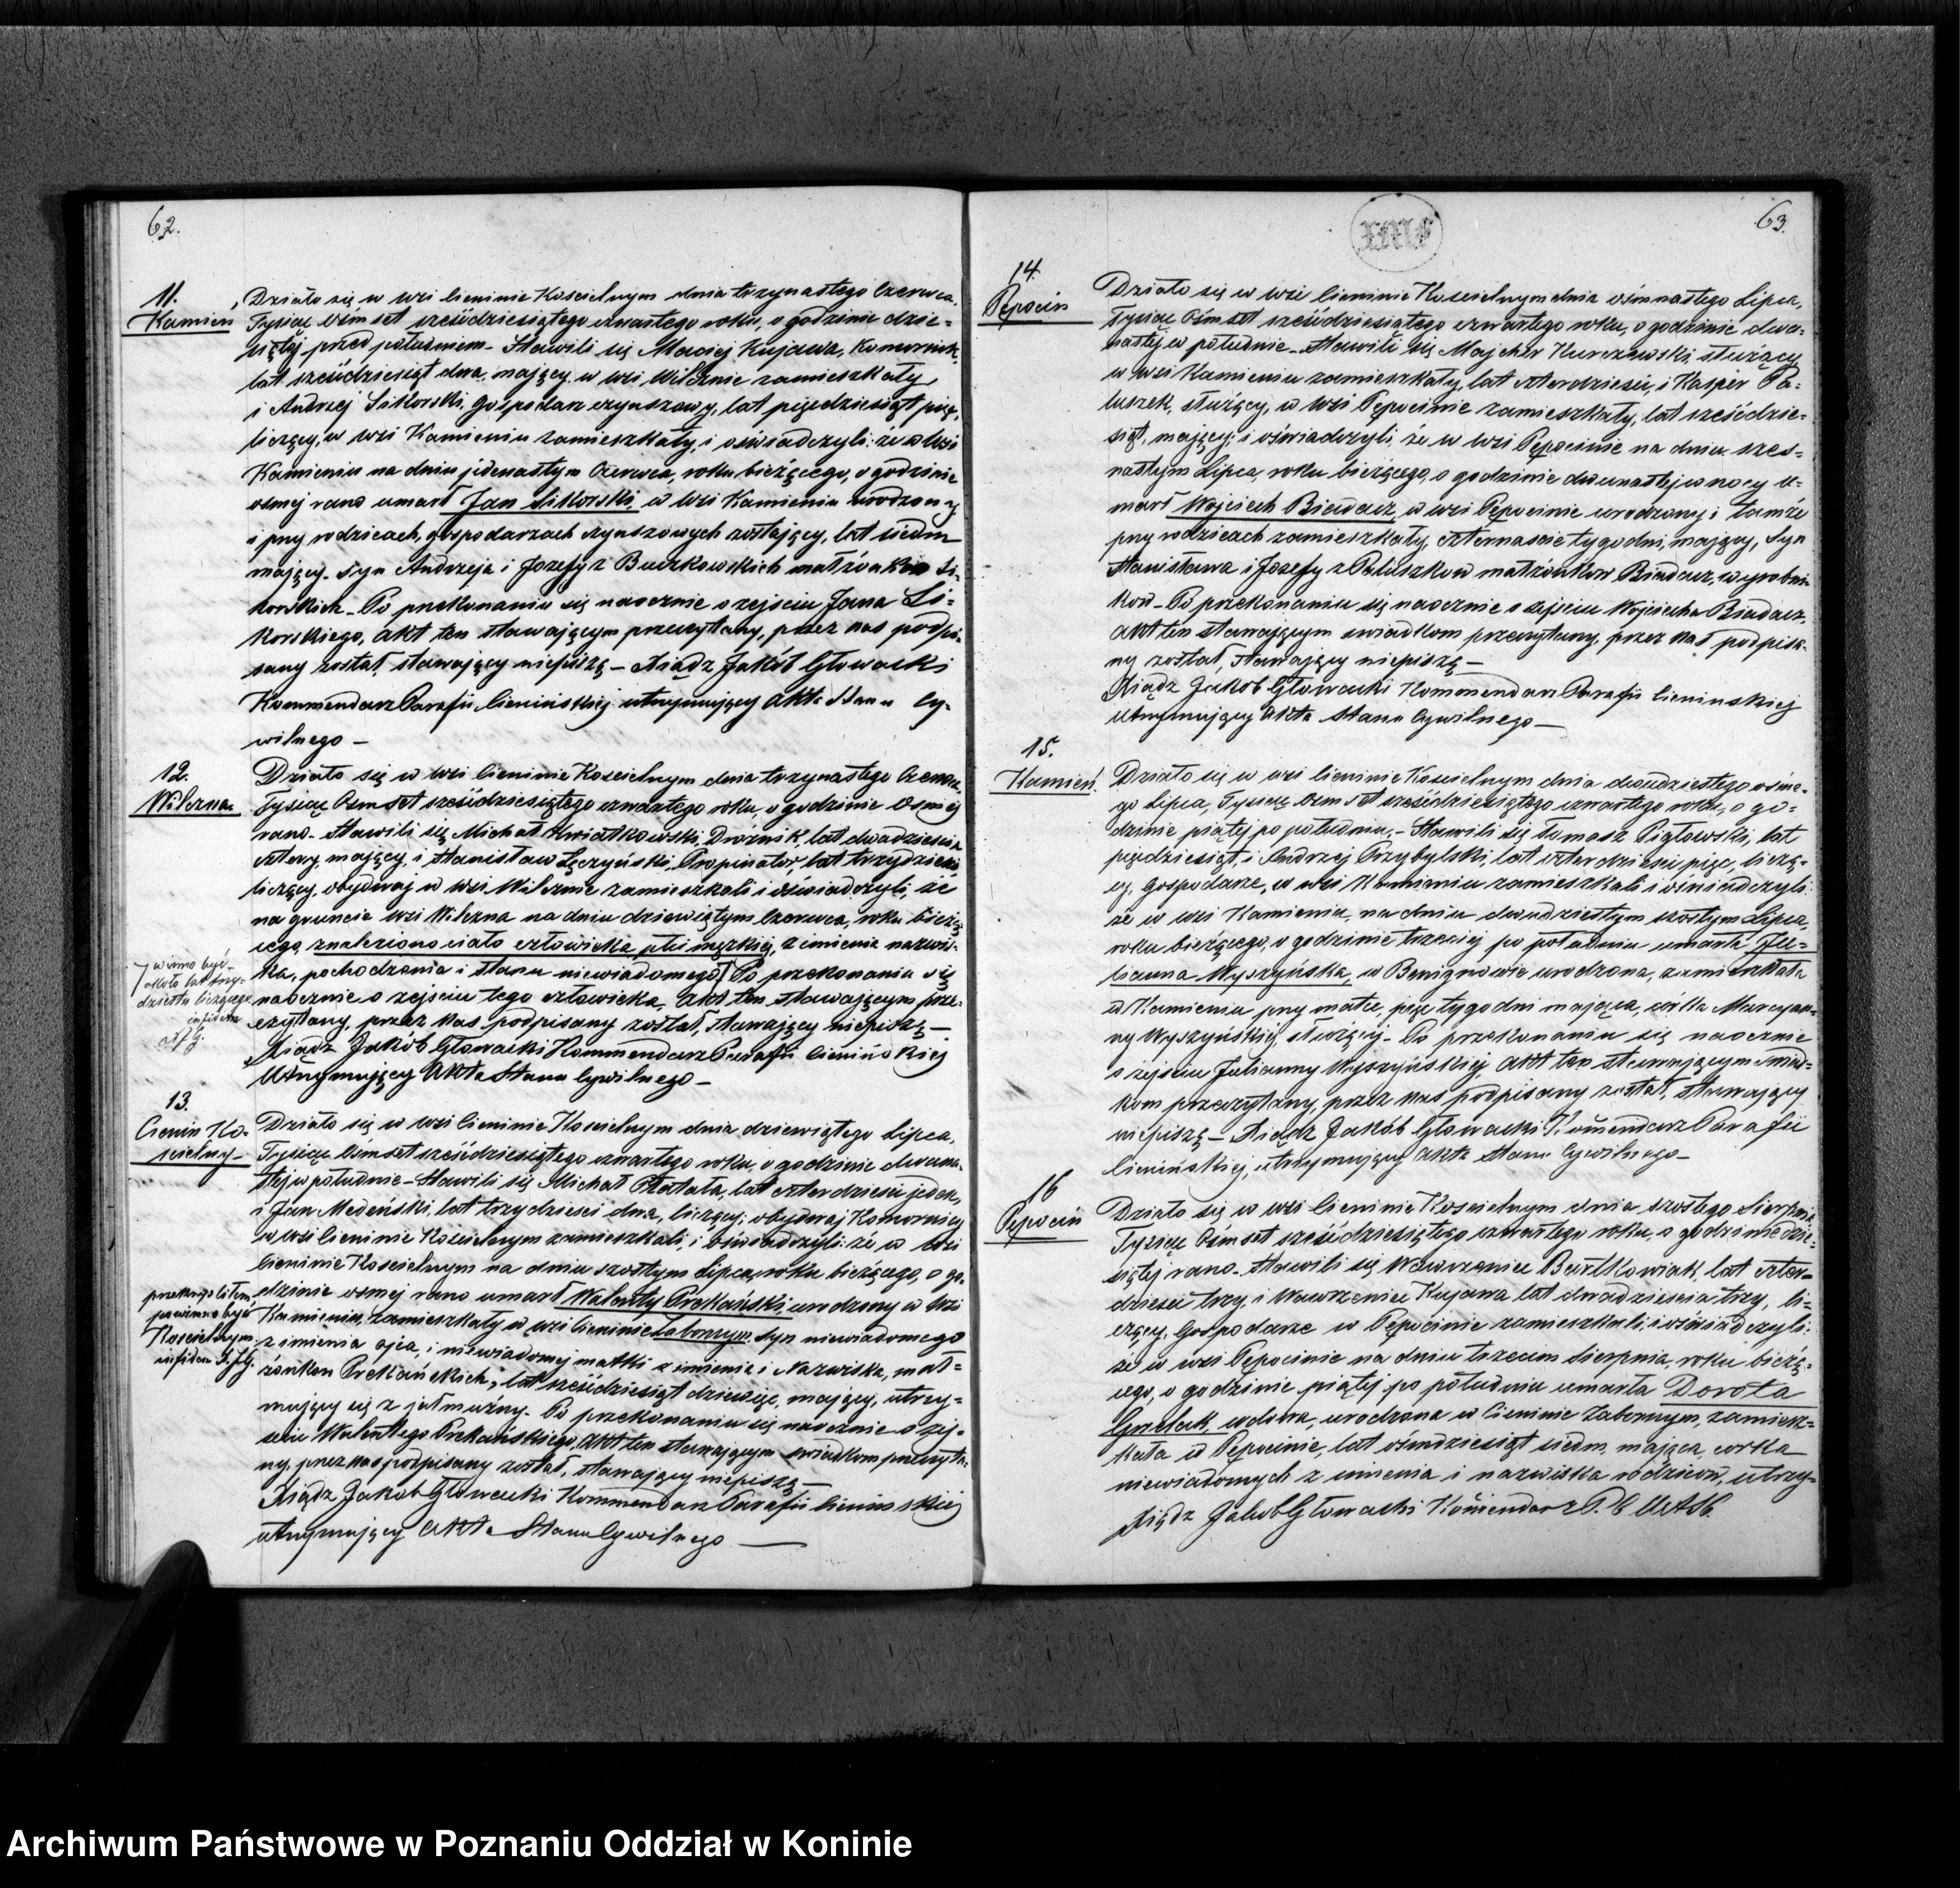 62.
11.
Kamień
Działo się w wsi Cieninie Kościelnym dnia trzynastego Czerwca,
Tysiąc Ośm set sześćdziesiątego czwartego roku, o godzinie dzie=
siątej przed południem. Stawili się Maciej Kujawa, Komornik,
lat sześćdziesiąt dwa, mający, w wsi Wilcznie zamieszkały,
i Andrzej Sikorski, Gospodarz czynszowy, lat pięćdziesiąt pięć,
liczący, w wsi Kamieniu zamieszkały, i oświadczyli: że w wsi
Kamieniu na dniu jedenastym Czerwca, roku bieżącego, o godzinie
ósmej rano umarł Jan Sikorski, w wsi Kamieniu urodzony
i przy rodzicach, gospodarzach czynszowych zostający, lat siedm
mający, syn Andrzeja i Józefy z Buczkowskich małżonków Si=
korskich – Po przekonaniu się naocznie o zejściu Jana Si=
korskiego, akt ten stawającym przeczytany, przez nas podpi=
sany został, stawający niepiszą – Xiądz Jakób Głowacki
Kommendarz Parafii Cienińskiej utrzymujący Akta Stanu Cy=
wilnego –
12.
Wilczna
Działo się w wsi Cieninie Kościelnym dnia trzynastego Czerwca,
Tysiąc Ośm set sześćdziesiątego czwartego roku, o godzinie ósmej
rano – Stawili się Michał Kwiatkowski, Dróżnik, lat dwadzieścia
cztery, mający, i Stanisław Łęczyński, Propinator, lat trzydzieści
liczący, obydwaj w wsi Wilcznie zamieszkali i oświadczyli, że
na gruncie wsi Wilczna na dniu dziewiątym Czerwca, roku bieżą=
cego, znaleziono ciało człowieka płci męzkiej, z imienia nazwis=
ka, pochodzenia i stanu niewiadomego Po przekonaniu się
naocznie o zejściu tego człowieka, akt ten, stawającym prze=
czytany, przez nas podpisany został, stawający niepiszą –
Xiądz Jakób Głowacki Kommendarz Parafii Cienińskiej
Utrzymujący Akta Stanu Cywilnego –
winno być
około lat trzy=
dziestu liczącego
infidem
13.
Cienin Ko=
ścielny –
Działo się w wsi Cieninie Kościelnym dnia dziewiątego Lipca,
Tysiąc Ośmset sześćdziesiątego czwartego roku, o godzinie dwuna=
stej w południe – Stawili się Michał Ratała, lat czterdzieści jeden,
i Jan Medeński, lat trzydzieści dwa, liczący, obydwaj Komornicy
w wsi Cieninie Kościelnym zamieszkali, i oświadczyli: że w wsi
Cieninie Kościelnym na dniu szóstym Lipca, roku bieżącego, o go=
dzinie ósmej rano umarł Walenty Prekański urodzony w wsi
Kamieniu, zamieszkały w wsi Cieninie Zabornym, syn niewiadomego
z imienia ojca, i niewiadomej matki z imienia i Nazwiska, mał=
żonków Prekańskich, lat sześćdziesiąt dziewięć, mający, utrzy=
mujący się z jałmużny. Po przekonaniu się naocznie o zej=
ściu Walentego Prekańskiego, akt ten stawającym świadkom przeczyta=
ny, przez nas podpisany został, stawający niepiszą –
Xiądz Jakób Głowacki Kommendarz Parafii Cienińskiej
utrzymujący Akta Stanu Cywilnego –
powinno być
Kościelnym
infidem
63.
14.
Pępocin
Działo się w wsi Cieninie Kościelnym dnia ośmnastego Lipca,
Tysiąc Ośmset sześćdziesiątego czwartego roku, o godzinie dwu=
nastej w południe – Stawili się Majcher Kurczewski służący
w wsi Kamieniu zamieszkały, lat czterdzieści, i Kasper Pa=
luszek, służący, w wsi Pępocinie zamieszkały, lat sześćdzie=
siąt, mający, i oświadczyli, że w wsi Pępocinie na dniu szes=
nastym Lipca, roku bieżącego, o godzinie dwunastej w nocy u=
marł Wojciech Biadacz, w wsi Pępocinie urodzony i tamże
przy rodzicach zamieszkały, czternaście tygodni, mający, Syn
Stanisława i Józefy z Paluszków małżonków Biadacz, wyrobni=
ków – Po przekonaniu się naocznie o zejściu Wojciecha Biadacz,
akt ten stawającym świadkom przeczytany, przez nas podpisa=
ny został, stawający niepiszą –
Xiądz Jakób Głowacki Kommendarz Parafii Cienińskiej
utrzymujący Akta Stanu Cywilnego –
15.
Kamień.
Działo się w wsi Cieninie Kościelnym dnia dwudziestego ósme=
go Lipca, Tysiąc Ośm set sześćdziesiątego czwartego roku, o go=
dzinie piątej po południu, – Stawili się Tomasz Pigłowski, lat
pięćdziesiąt, i Andrzej Przybylski, lat czterdzieści pięć, liczą=
cy, Gospodarze, w wsi Kamieniu zamieszkali i oświadczyli:
że w wsi Kamieniu, na dniu dwudziestym szóstym Lipca,
roku bieżącego, o godzinie trzeciej po południu umarła Ju=
lianna Wyszyńska, w Benignowie urodzona, zamieszkała
w Kamieniu przy matce, pięć tygodni mająca, córka Marcyan=
ny Wyszyńskiej, służącej – Po przekonaniu się naocznie
o zejściu Julianny Wyszyńskiej, akt ten stawającym świad=
kom przeczytany, przez nas podpisany został, stawający
niepiszą – Xiądz Jakób Głowacki Komendarz Parafii
Cienińskiej, utrzymujący Akta Stanu Cywilnego –
16
Pępocin
Działo się w wsi Cieninie Kościelnym dnia szóstego Sierpnia,
Tysiąc Ośmset sześćdziesiątego czwartego roku, o godzinie dzie=
siątej rano. Stawili się Wawrzeniec Bartkowiak, lat czter=
dzieści trzy, i Wawrzeniec Kujawa lat dwadzieścia trzy, li=
czący, Gospodarze w Pępocinie zamieszkali, i oświadczyli:
że w wsi Pępocinie na dniu trzecim Sierpnia, roku bieżą=
cego, o godzinie piątej po południu umarła Dorota
Grzelak, wdowa, urodzona w Cieninie Zabornym, zamiesz=
kała w Pępocinie, lat ośmdziesiąt siedm, mająca, córka
niewiadomych z imienia i nazwiska rodziców, utrzy=
Xiądz Jakób Głowacki Komendarz P. C. U A S C.
Archiwum Państwowe w Poznaniu Oddział w Koninie